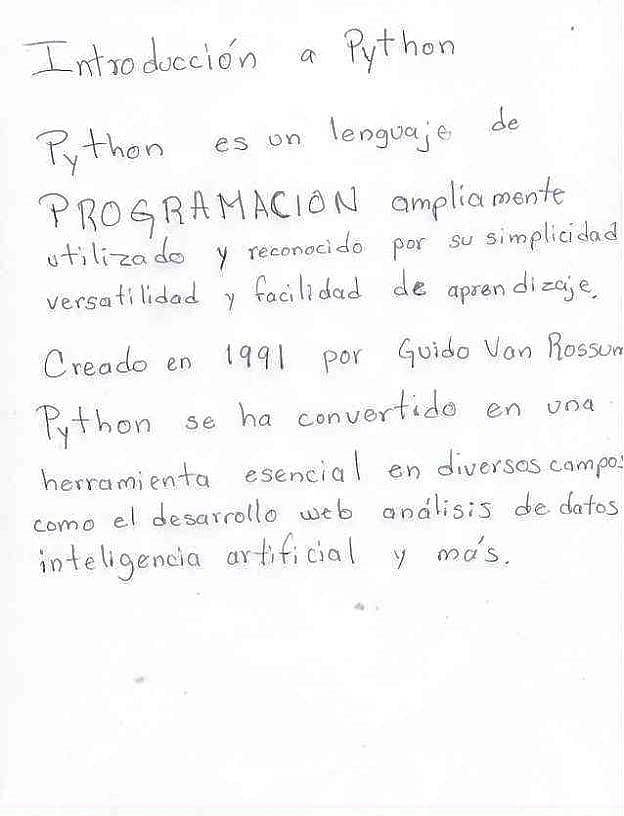 Introducción a Python
Python es un lenguaje de
PROGRAMACION ampliamente
utilizado y reconocido por su simplicidad
versatilidad y facilidad de aprendizaje.
Creado en 1991 por Guido Van Rossum
Python se ha convertido en una
herramienta esencial en diversos campos
como el desarrollo web análisis de datos
inteligencia artificial y más.